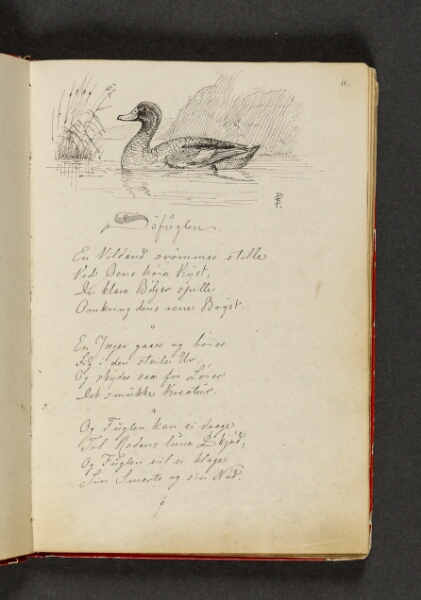 Söfuglen.
En Vildand svömmer stille
Ved Öens höie Kyst,
De klare Bölger spille
Omkring dens rene Bryst.
En Jæger gaaer og böier
Sig i den steile Ur,
Og skyder saa for Löier
Det smukke Kreatur.
Og Fuglen kan ei drage
Til Redens lune Skjöd,
Og Fuglen vil ei klage
Sin Smerte og sin Nöd.